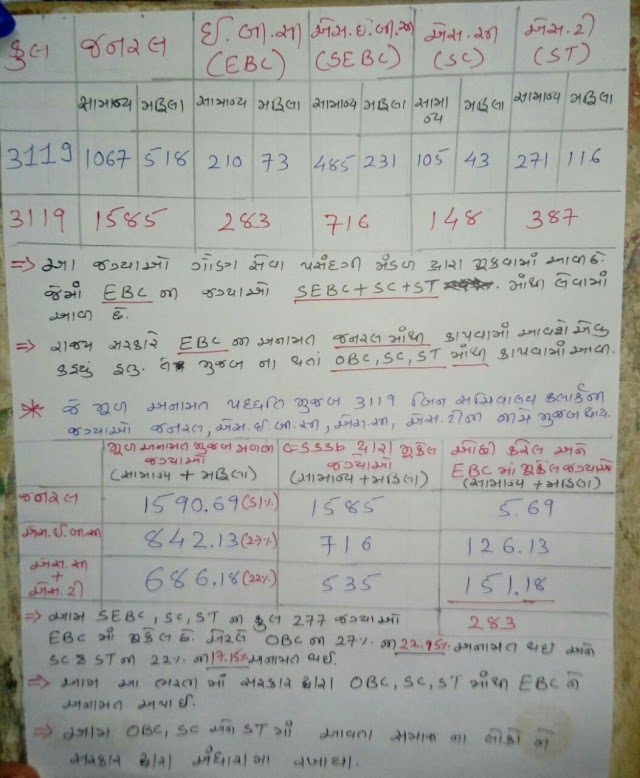 કુલ જનરલ ઈ.બી.સી (EBC) એસ.ઈ.બી.સી (SEBC) એસ.સી (SC) એસ.ટી (ST)
સામાન્ય મહિલા સામાન્ય મહિલા સામાન્ય મહિલા સામાન્ય મહિલા સામાન્ય મહિલા
3119 1067 518 210 73 485 231 105 43 271 116
3119 1585 283 716 148 387
⇒ આ જગ્યાઓ ગૌણ સેવા પસંદગી મંડળ દ્વારા મૂકવામાં આવી છે.
જેમાં EBC ની જગ્યાઓ SEBC+SC+ST માંથી લેવામાં
આવી છે.
⇒ રાજ્ય સરકારે EBC ની અનામત જનરલ માંથી કાપવામાં આવશે એવું
કહ્યું હતુ. તે મુજબ ના થતાં OBC, SC, ST માંથી કાપવામાં આવી.
* જે મૂળ અનામત પદ્ધતિ મુજબ 3119 બિન સચિવાલય કલાર્કની
જગ્યાઓ જનરલ, એસ.ઈ.બી.સી, એસ.સી, એસ.ટીની નીચે મુજબ થાય.
મૂળ અનામત મુજબ મળતી જગ્યાઓ (સામાન્ય + મહિલા) દ્વારા મૂકેલ જગ્યાઓ (સામાન્ય + મહિલા) ઓછી કરેલ અને EBC માં મૂકેલ જગ્યાઓ (સામાન્ય + મહિલા)
જનરલ 1590.69 (51%) 1585 5.69
એસ.ઈ.બી.સી 842.13 (27%) 716 126.13
એસ.સી + એસ.ટી 686.18 (22%) 535 151.18
283
⇒ આમ SEBC, SC, ST ની કુલ 277 જગ્યાઓ
EBC માં મૂકેલ છે. એટલે OBC ની 27% ની 22.95% અનામત થઈ અને
SC & ST ની 22% ની 17.15% અનામત થઈ.
⇒ આમ આ ભરતી માં સરકાર દ્વારા OBC, SC, ST માંથી EBC ને
અનામત અપાઈ.
⇒ આમ OBC, SC અને ST માં આવતા સમાજ ના લોકો ને
સરકાર દ્વારા અંધારામાં રખાયા.